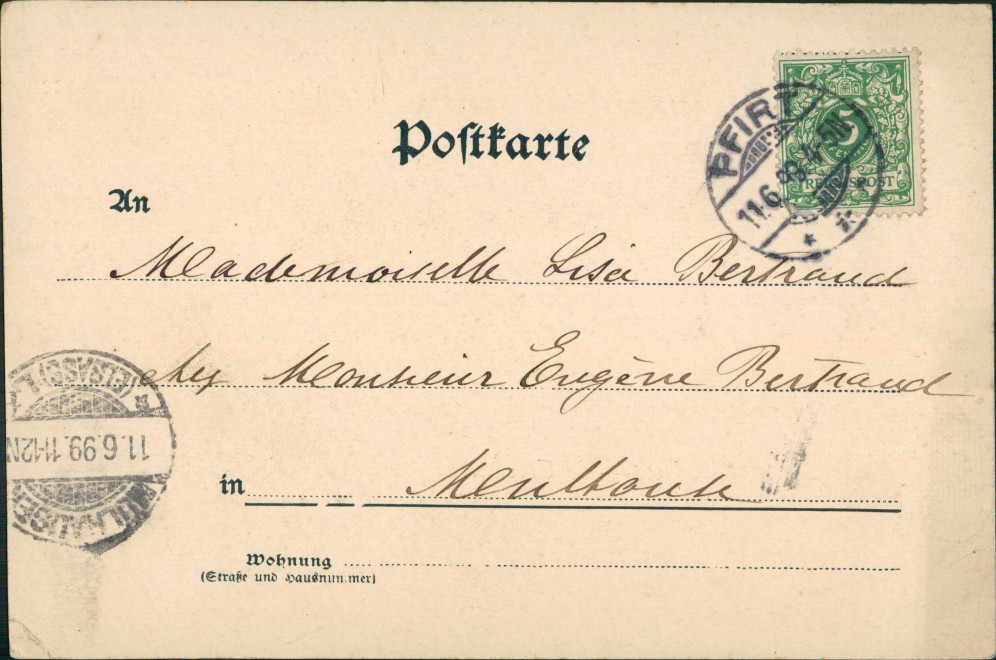 Postkarte
PFIRT
11.6.99. 4-5N.
5
REICHSPOST
An
Mademoiselle Lisa Bertrand
chez Monsieur Eugène Bertrand
MÜLHAUSEN (ELSASS)
11.6.99. 11-12N
in Mulhouse
Wohnung
(Straße und Hausnummer)